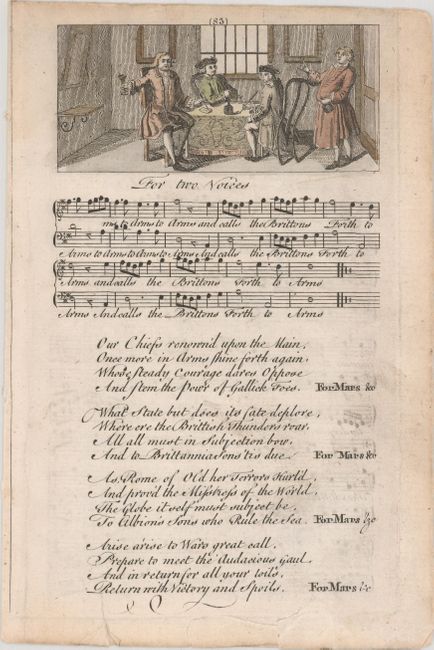 (83)
For two Voices
ms to Arms to Arms and calls the Brittons Forth to
Arms to Arms to Arms to Arms And calls the Brittons Forth to
Arms and calls the Brittons Forth to Arms
Arms And calls the Brittons Forth to Arms
Our Chiefs renown'd upon the Main,
Once more in Arms shine forth again,
Whose steady Courage dares Oppose
And stem the Pow'r of Gallick Foes. For Mars &c
What State but does its fate deplore,
Where ere the Brittish Thunders roar.
All all must in Subjection bow,
And to Brittannia Sons 'tis due For Mars &c
As Rome of Old her Terrors Hurld,
And prov'd the Misstress of the World,
The Globe it self must subject be,
To Albions Sons who Rule the Sea. For Mars &c
Arise arise to Wars great call,
Prepare to meet the Audacious Gaul,
And in return for all your toils,
Return with Victory and Spoils. For Mars &c